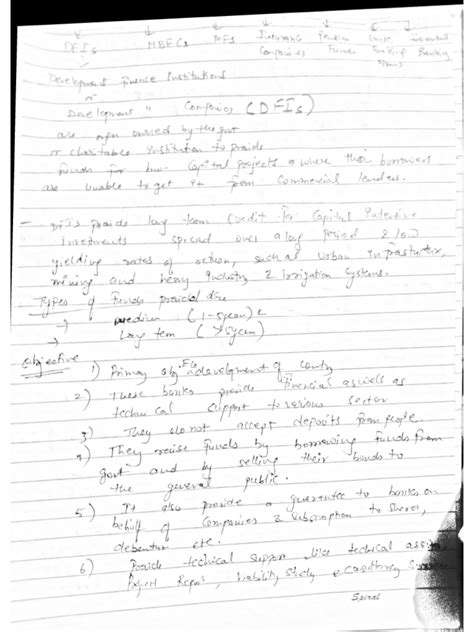 DFIs MBFCs MFs Insurance Pension
Companies Funds Banking
Development finance Institutions
or
Development " Companies (DFIs)
are orgn owned by the govt
or charitable Institution to provide
funds for low- Capital projects or where their borrowers
are unable to get it from commercial lenders.
- DFIs provide long term Credit for Capital Intensive
Investments spread over a long Period & low
yielding rates of return, such as Urban infrastructure,
mining and heavy Industry & irrigation systems.
Types of funds provided
→ medium (1-5year)
→ Long term (>5year)
Objective 1) Primary obj Eco development of country
2) These banks provide financial as well as
technical support to various sector
3) They do not accept deposits from people.
4) They raise funds by borrowing funds from
govt and by selling their bonds to
the general public.
5) It also provide a guarantee to banks on
behalf of Companies & subscription to shares,
debenture etc.
6) Provide technical support like technical
Project Report, Viability study & Consultancy
Spiral